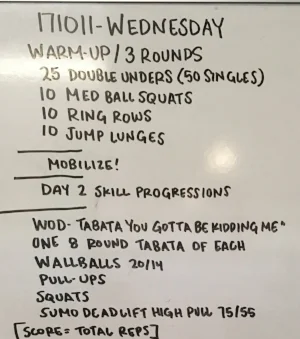 171011-WEDNESDAY
WARM-UP/3 ROUNDS
25 DOUBLE UNDERS (50 SINGLES)
10 MED BALL SQUATS
10 RING ROWS
10 JUMP LUNGES
MOBILIZE!
DAY 2 SKILL PROGRESSIONS
WOD- TABATA YOU GOTTA BE KIDDING ME"
ONE 8 ROUND TABATA OF EACH
WALLBALLS 20/14
PULL-UPS
SQUATS
SUMO DEADLIFT HIGH PULL 75/55
[SCORE= TOTAL REPS]